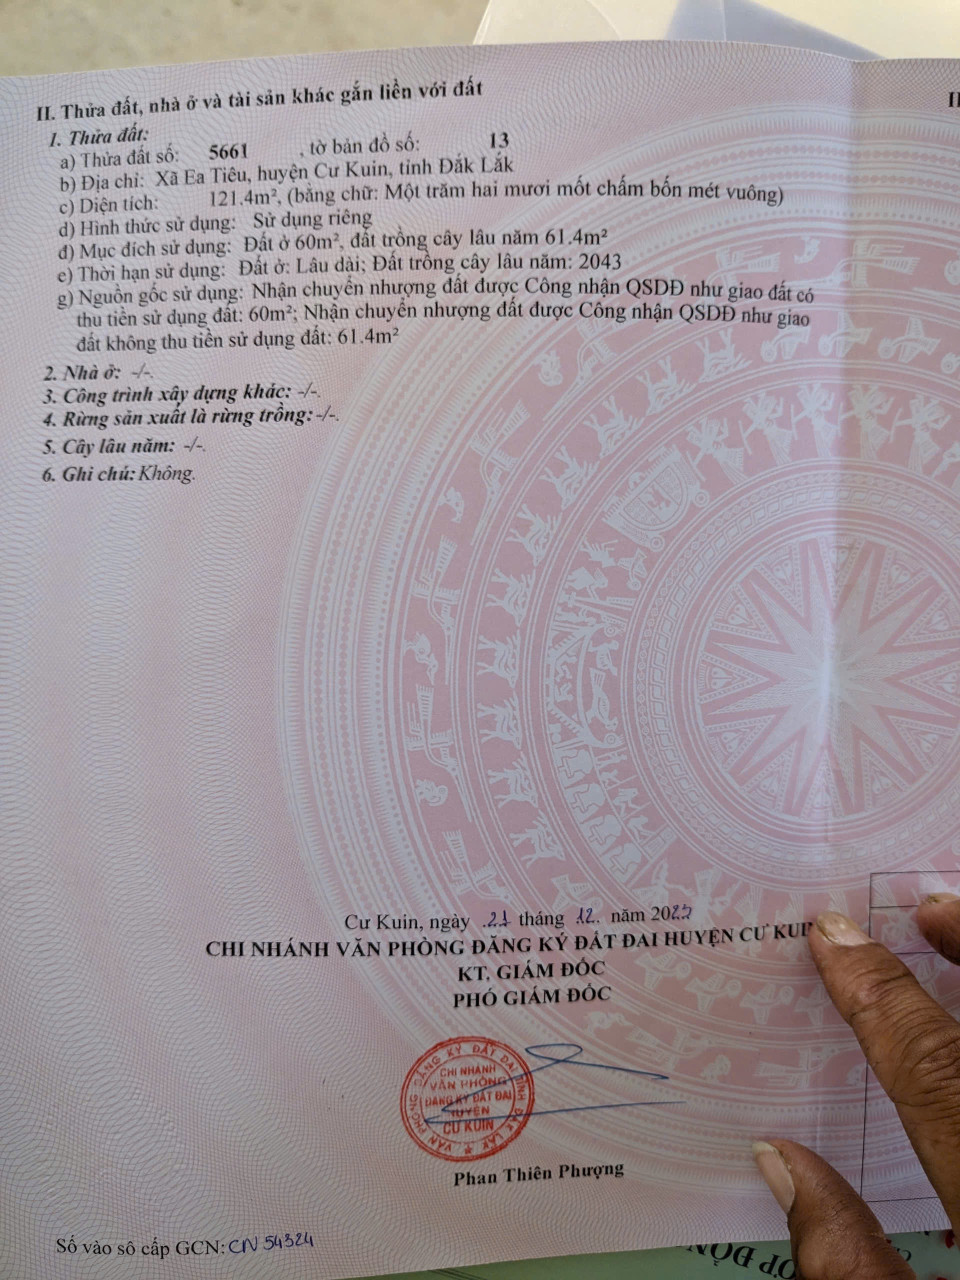 II. Thửa đất, nhà ở và tài sản khác gắn liền với đất
1. Thửa đất:
a) Thửa đất số: 5661 , tờ bản đồ số: 13
b) Địa chỉ: Xã Ea Tiêu, huyện Cư Kuin, tỉnh Đắk Lắk
c) Diện tích: 121.4m², (bằng chữ: Một trăm hai mươi mốt chấm bốn mét vuông)
d) Hình thức sử dụng: Sử dụng riêng
đ) Mục đích sử dụng: Đất ở 60m², đất trồng cây lâu năm 61.4m²
e) Thời hạn sử dụng: Đất ở: Lâu dài; Đất trồng cây lâu năm: 2043
g) Nguồn gốc sử dụng: Nhận chuyển nhượng đất được Công nhận QSDĐ như giao đất có
thu tiền sử dụng đất: 60m²; Nhận chuyển nhượng đất được Công nhận QSDĐ như giao
đất không thu tiền sử dụng đất: 61.4m²
2. Nhà ở: -/-.
3. Công trình xây dựng khác: -/-.
4. Rừng sản xuất là rừng trồng: -/-.
5. Cây lâu năm: -/-.
6. Ghi chú: Không.
Cư Kuin, ngày 21 tháng 12 năm 2023
CHI NHÁNH VĂN PHÒNG ĐĂNG KÝ ĐẤT ĐAI HUYỆN CƯ KUIN
KT. GIÁM ĐỐC
PHÓ GIÁM ĐỐC
VĂN PHÒNG ĐĂNG KÝ ĐẤT ĐAI TỈNH ĐẮK LẮK
CHI NHÁNH
VĂN PHÒNG
ĐĂNG KÝ ĐẤT ĐAI
HUYỆN
CƯ KUIN
Phan Thiên Phượng
Số vào sổ cấp GCN: CN 54324